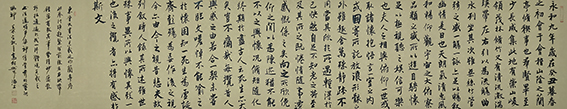 永和九年歲在癸丑暮春
之初會于會稽山陰之蘭
亭脩稧事也羣賢畢至
少長咸集此地有崇山峻
領茂林脩竹又有清流激湍
暎帶左右引以為流觴曲水
列坐其次雖無絲竹管
弦之盛一觴一詠亦足以暢
敘幽情是日也天朗氣清惠風
和暢仰觀宇宙之大俯察
品類之盛所以遊目騁懷
足以極視聽之娛信可樂
也夫人之相與俯仰一世或
取諸懷抱悟言一室之內
或因寄所託放浪形骸之
外雖趣舍萬殊靜躁不
同當其欣於所遇暫得於
己快然自足不知老之將至
及其所之既惓情隨事遷
感慨係之矣向之所欣俛
仰之間以為陳迹猶不能不
以之興懷況脩短隨化
終期於盡古人云死生亦大
矣豈不痛哉每攬昔人興
感之由若合一契未嘗臨文
嗟悼不能喻之
於懷固知一死生為虛誕
齊彭殤為妄作後之視今
亦由今之視昔悲夫故
列敘時人錄其所述雖世
殊事異所以興懷其致一
也後之攬者亦將有感於
斯文